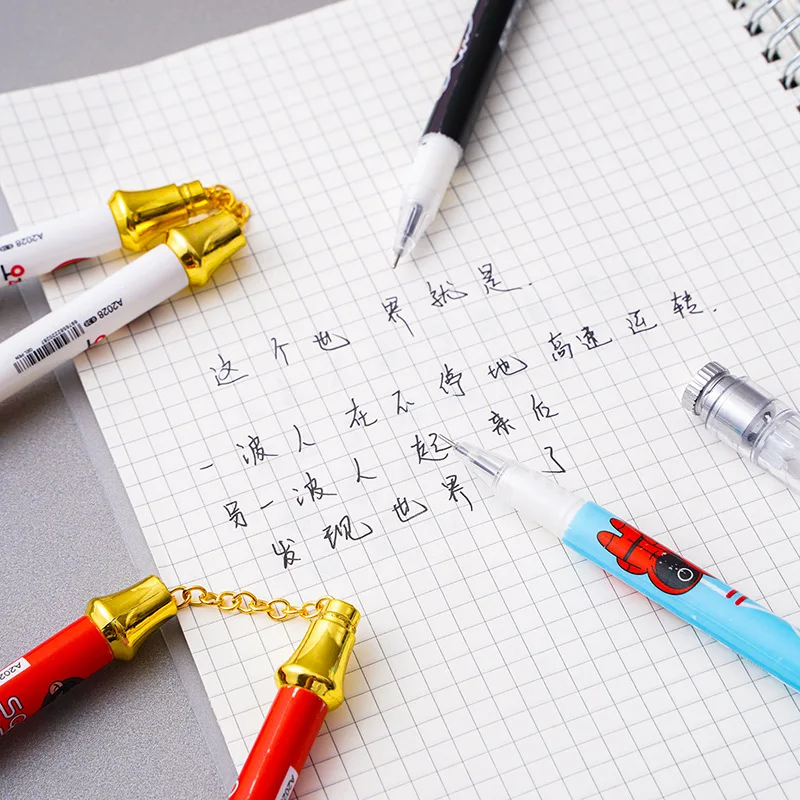 这个世界就是.
一波人在不停地高速运转.
另一波人起来后
发现世界 了
A2028
A2028
A202